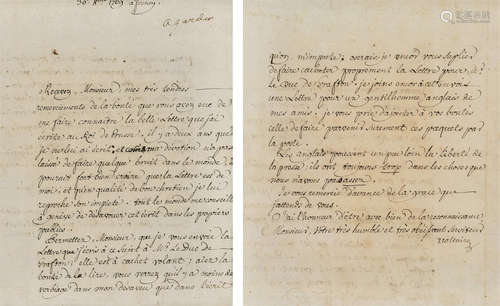 à garder
Recevez, Monsieur mes très tendres
remerciements de la bonté que vous avez eue de
me faire connaitre la belle Lettre que j'ai
écrite au Roi de Prusse. il y a deux ans que
je ne lui ai écrit,
laisser de faire quelque bruit dans le monde
pouvait fort bien croire que la Lettre est de
moi; et qu'en qualité de bon chrétien je lui
reproche son impieté. tout le monde me conseille
Permettez, Monsieur, que je vous envoie la
Lettre que j'écris à ce sujet à Mr. Le Duc de
Grafton; elle est à cachet volant; aiez la
bonté de la lire, vous verez qu'il y a moins de
verbiage dans mon désaveu que dans l'écrit
qu'on m'impute: oserais je encor vous suplier
de faire cacheter proprement la Lettre pour
Le Duc de Grafton. je joins encor à cet envoi
une Lettre pour un gentilhomme anglais de
mes amis: je vous prie d'ajouter à vos bontés
celle de faire parvenir surement ces paquets par
la poste.
Les anglais poussent un peu loin la liberté de
la presse ils ont toujours trop dans les choses que
nous n'avons pas assez.
Je vous remercie d'avance de la grace que
j'attends de vous.
J'ai l'honneur d'être avec bien de la reconnaissance
Monsieur, Votre très humble et très obéissant serviteur
Voltaire